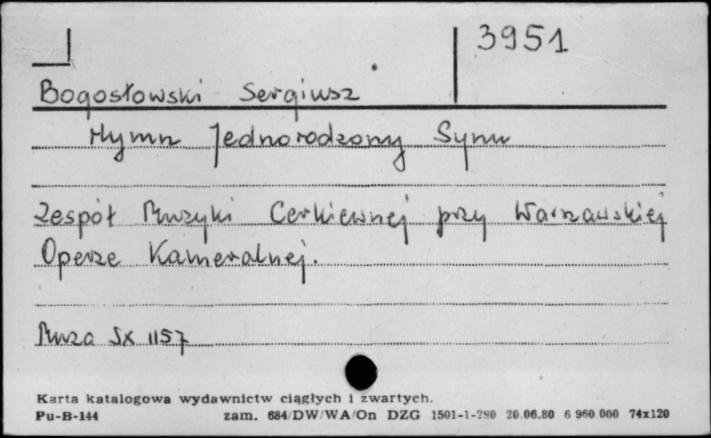 3951
Bogosłowski Sergiusz
Hymn Jednorodzony Synu
Zespół Muzyki Cerkiewnej przy Warszawskiej
Operze Kameralnej.
Muza SX 1157
Karta katalogowa wydawnictw ciągłych i zwartych.
Pu-B-144 zam. 684/DW/WA/On DZG 1501-1-280 20.06.80 6 960 000 74x120